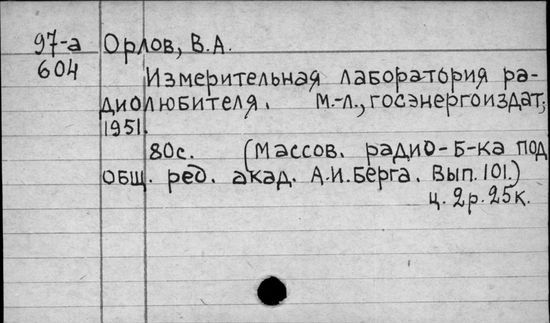 97-а Орлов, В.А.
604 Измерительная лаборатория ра-
диолюбителя. М.-Л., Госэнергоиздат,
1951.
80с. (Массов. радио-б-ка под
общ. ред. акад. А.И.Берга. Вып.101.)
ц. 2р.25к.